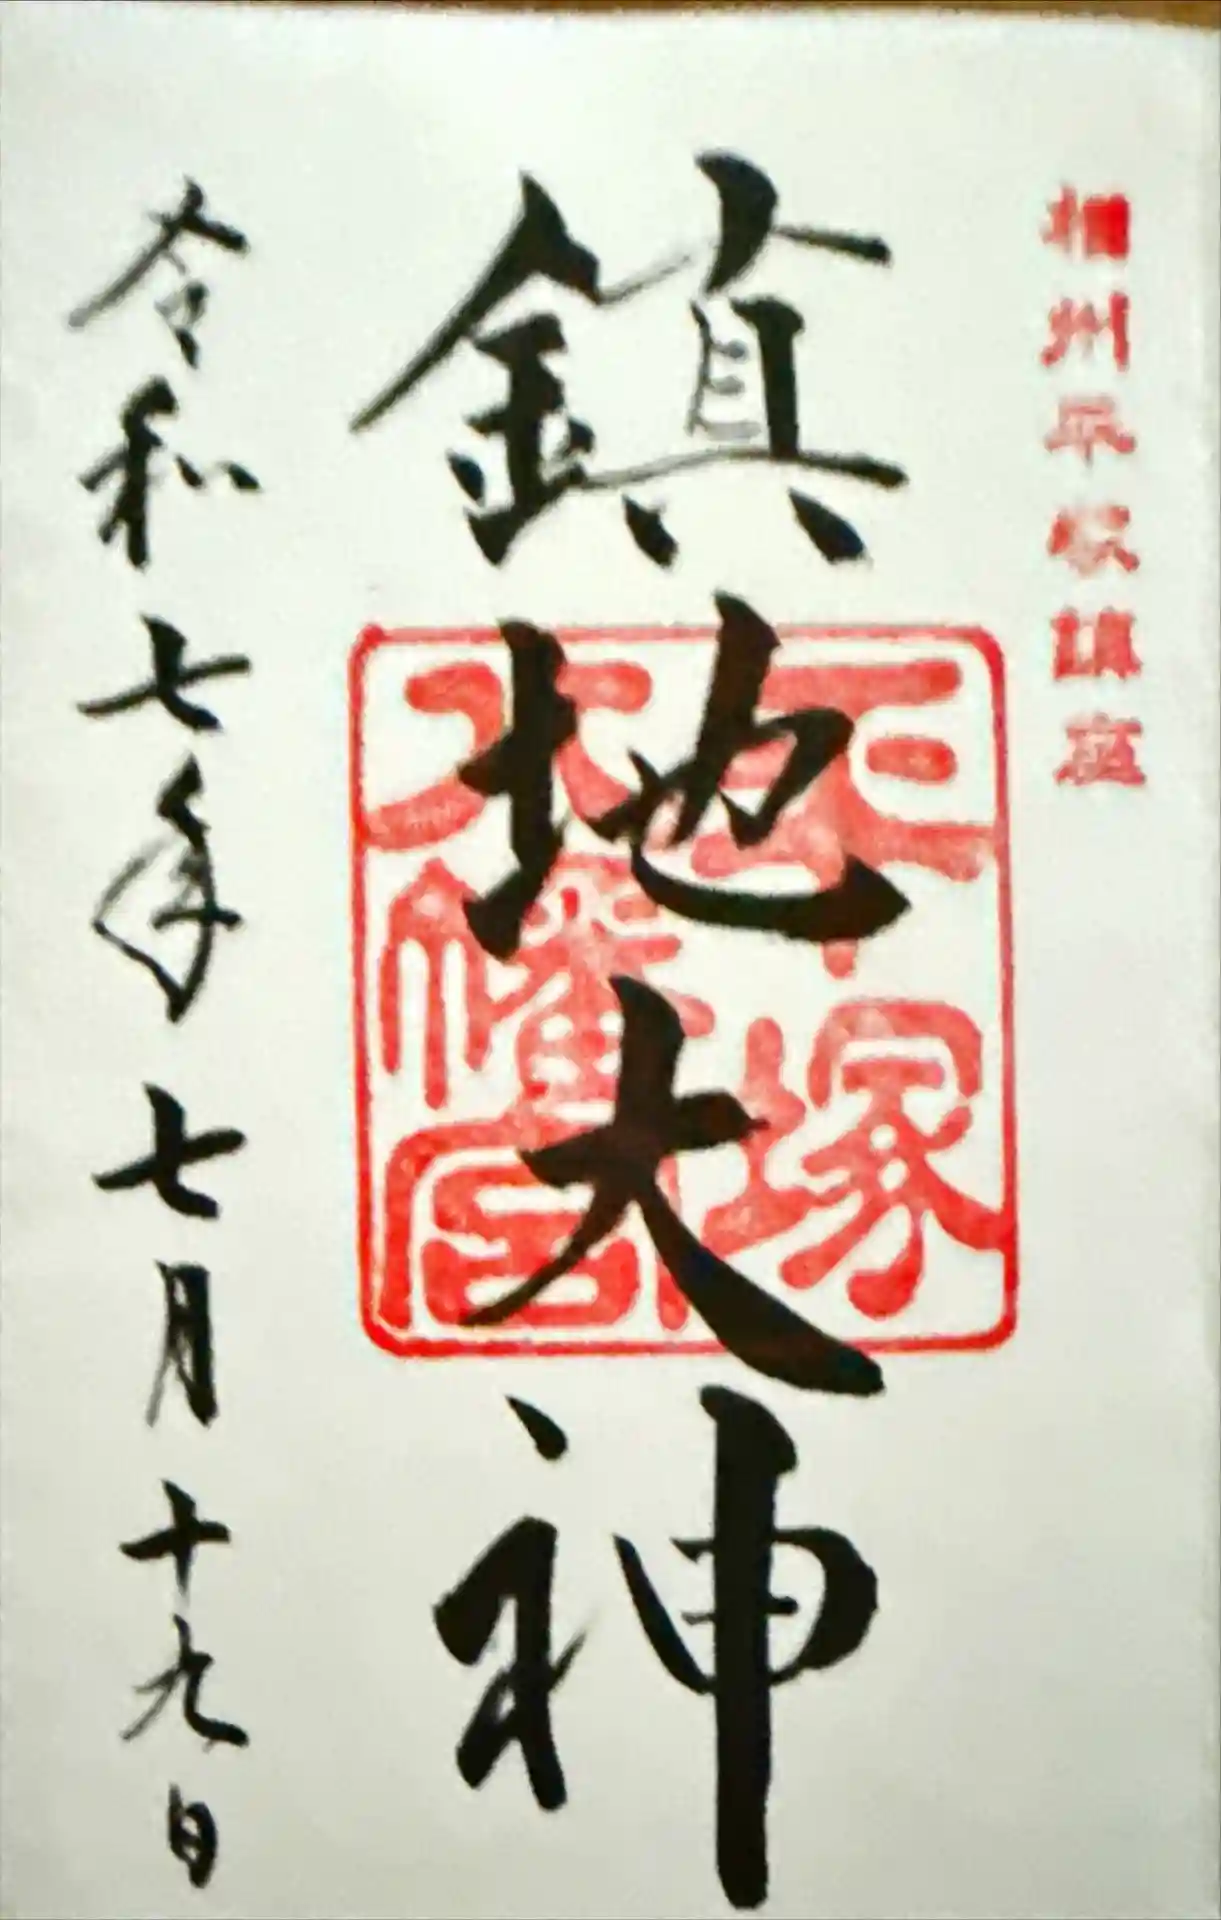 相州平塚鎮座
鎮地大神
平塚
八幡宮
令和七年七月十九日